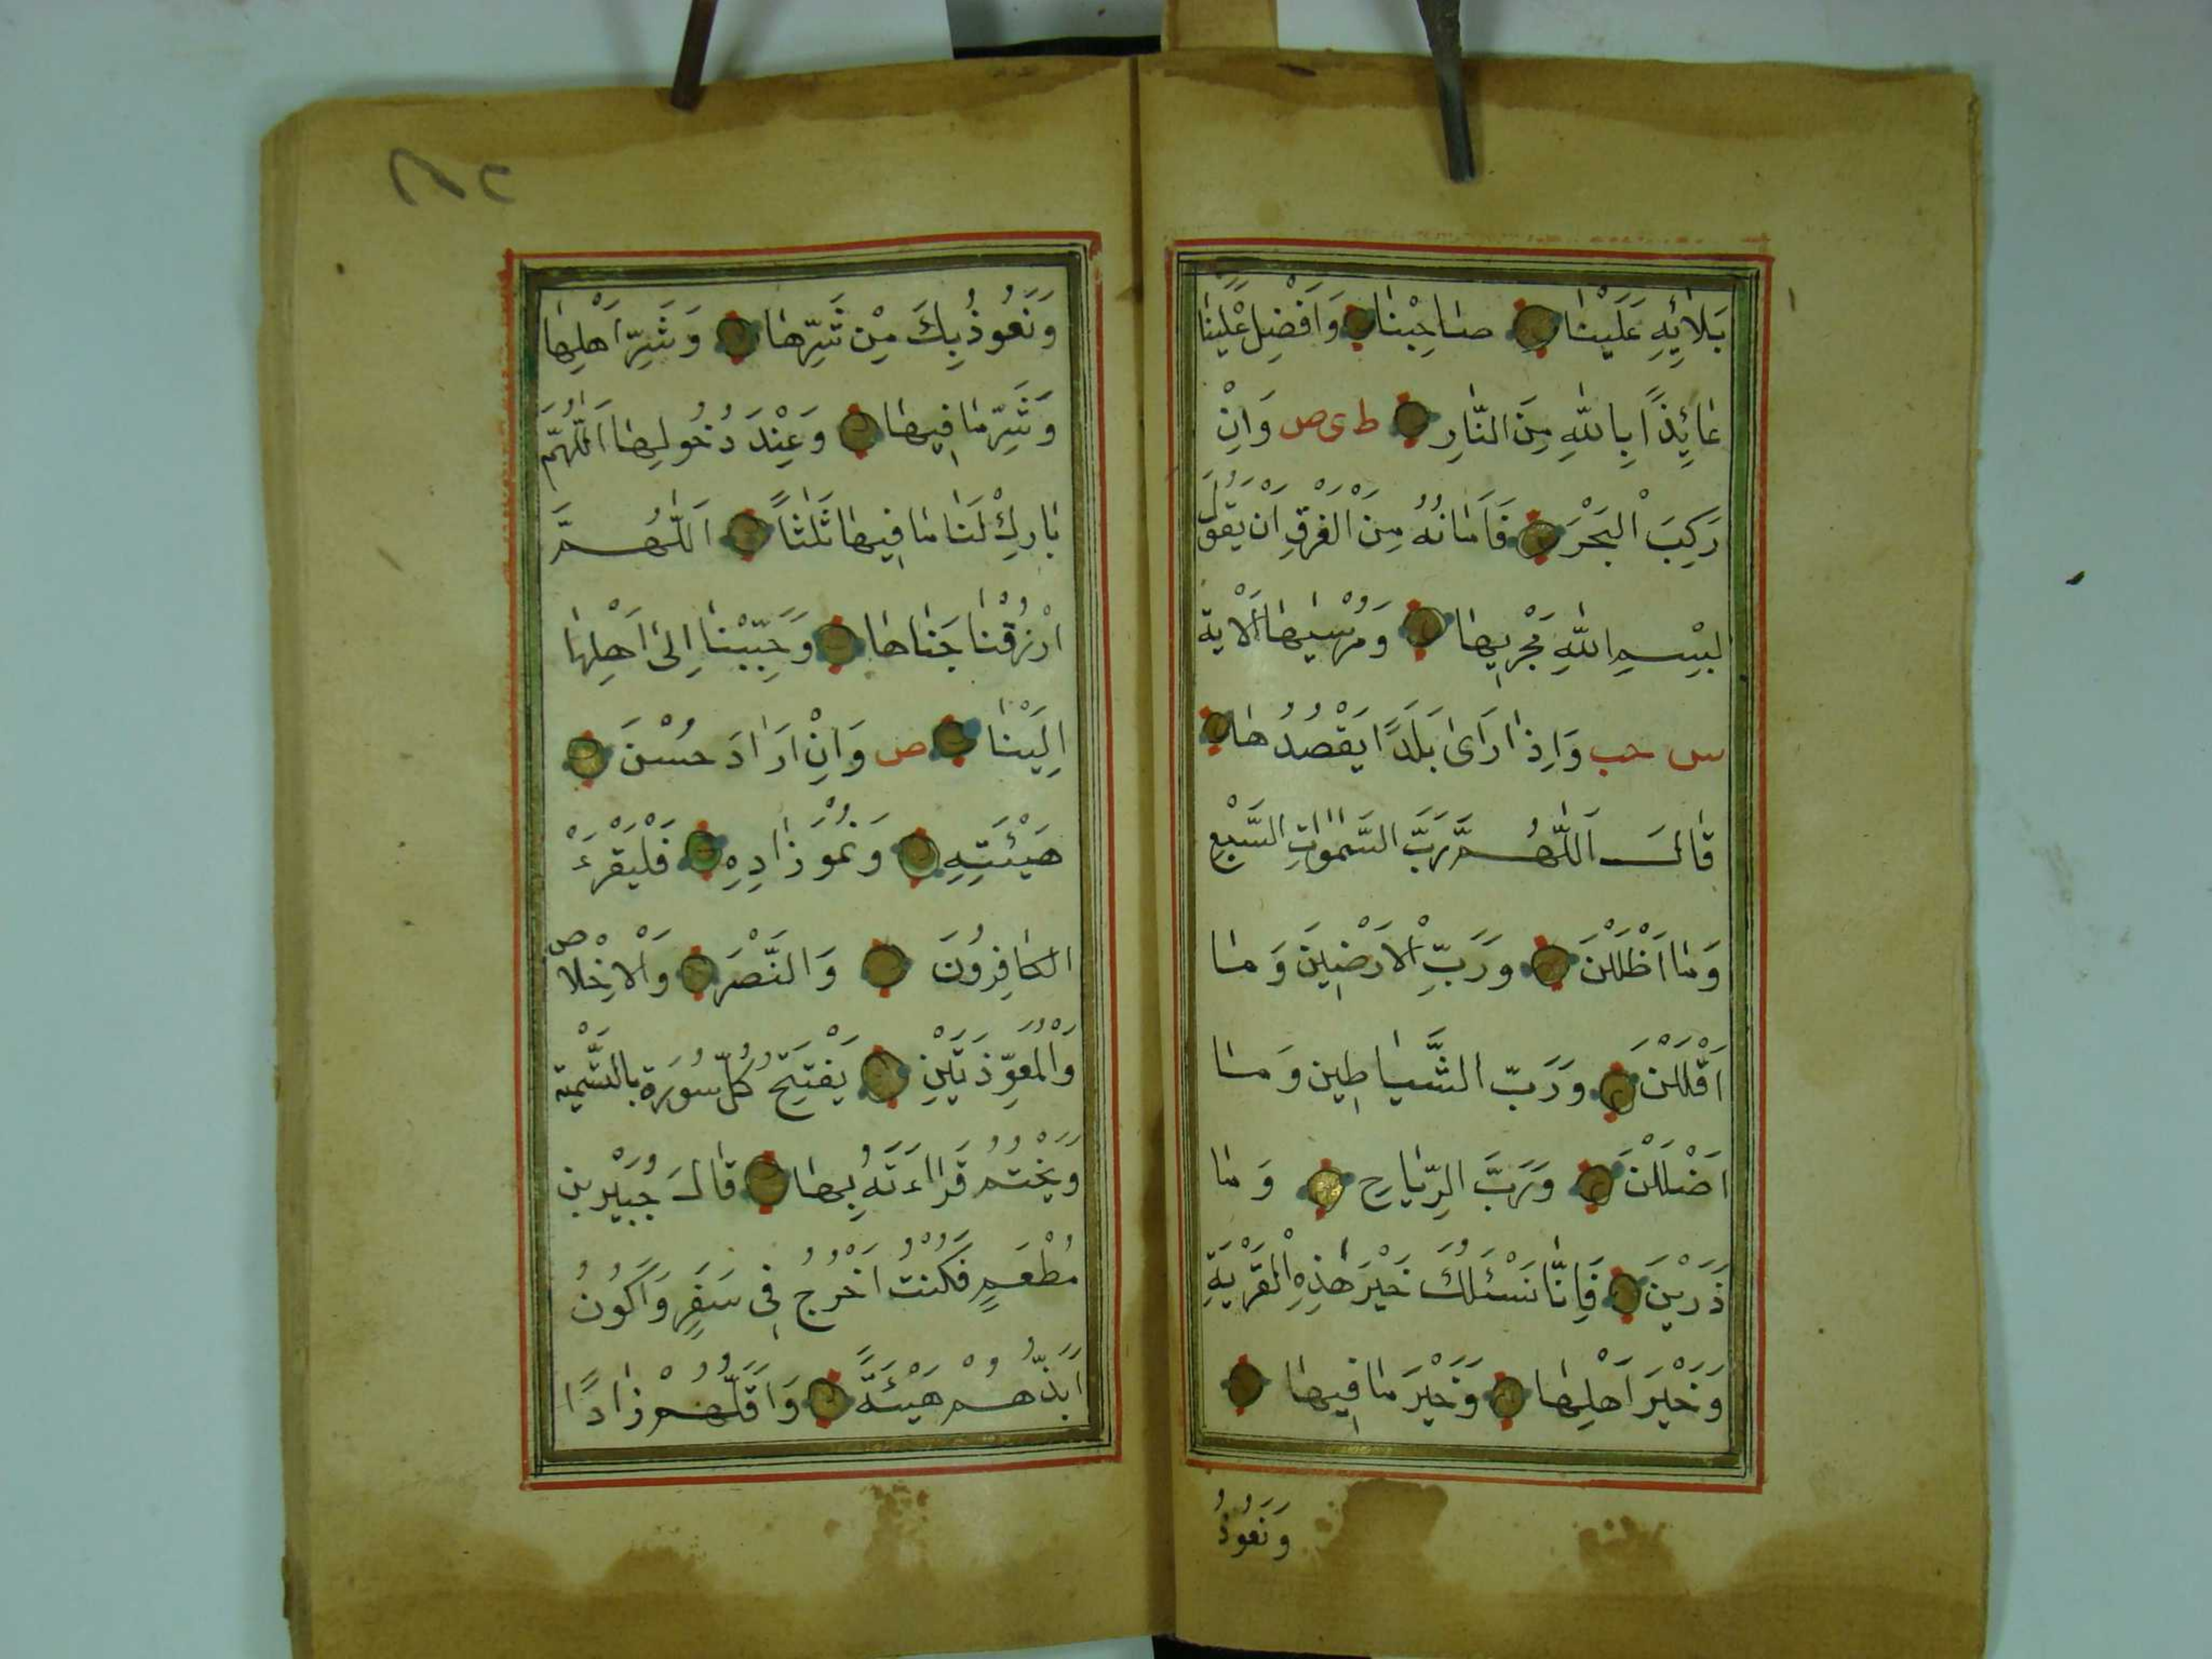 بَلَائِهِ عَلَيْنَا صَاحِبْنَا وَاَفْضِلْ عَلَيْنَا
عَائِذًا بِاللّٰهِ مِنَ النَّارِ ط ى ص وَاِنْ
رَكِبَ الْبَحْرَ فَاَمَانُهُ مِنَ الْغَرَقِ اَنْ يَقُولَ
بِسْمِ اللّٰهِ مَجْرٰيهَا وَمُرْسٰيهَا اَلْاٰيَة
س حب وَاِذَا رَاٰى بَلَدًا يَقْصُدُهَا
قَالَ اَللّٰهُمَّ رَبَّ السَّمٰوَاتِ السَّبْعِ
وَمَا اَظْلَلْنَ وَرَبِّ الْاَرَضِينَ وَمَا
اَقْلَلْنَ وَرَبّ الشَّيَاطِين وَمَا
اَضْلَلْنَ وَرَبَّ الرِّيَاحِ وَمَا
ذَرَيْنَ فَاِنَّا نَسْئَلُكَ خَيْرَ هٰذِهِ الْقَرْيَةِ
وَخَيْرَ اَهْلِهَا وَخَيْرَ مَا فِيهَا
وَنَعُوذُ
وَنَعُوذُ بِكَ مِنْ شَرِّهَا وَشَرِّ اَهْلِهَا
وَشَرِّ مَا فِيهَا وَعِنْدَ دُخُولِهَا اَللّٰهُمَّ
بَارِكْ لَنَا مَا فِيهَا ثَلٰثًا اَللّٰهُمَّ
ارْزُقْنَا جَنَاهَا وَحَبِّبْنَا اِلٰى اَهْلِهَا
اِلَيْنَا ص وَاِنْ اَرَادَ حُسْنَ
هَيْئَتِهِ وَنُمُوَّ زَادِهِ فَلْيَقْرَءْ
الكَافِرُونَ وَالنَّصْرَ وَالْاِخْلَاص
وَالْمُعَوِّذَتَيْنِ يَفْتَتِحُ كُلَّ سُورَة بالتَّسْمِية
وَيَخْتُمُ قَرَاءَتَهُ بِهَا قَالَ جُبَيْر بن
مُطْعِمٍ فَكُنْتُ اَخْرُجُ فِى سَفَرٍ وَاَكُونُ
اَبَذَّهُمْ هَيْئَةً وَاَقَلَّهُمْ زَادًا